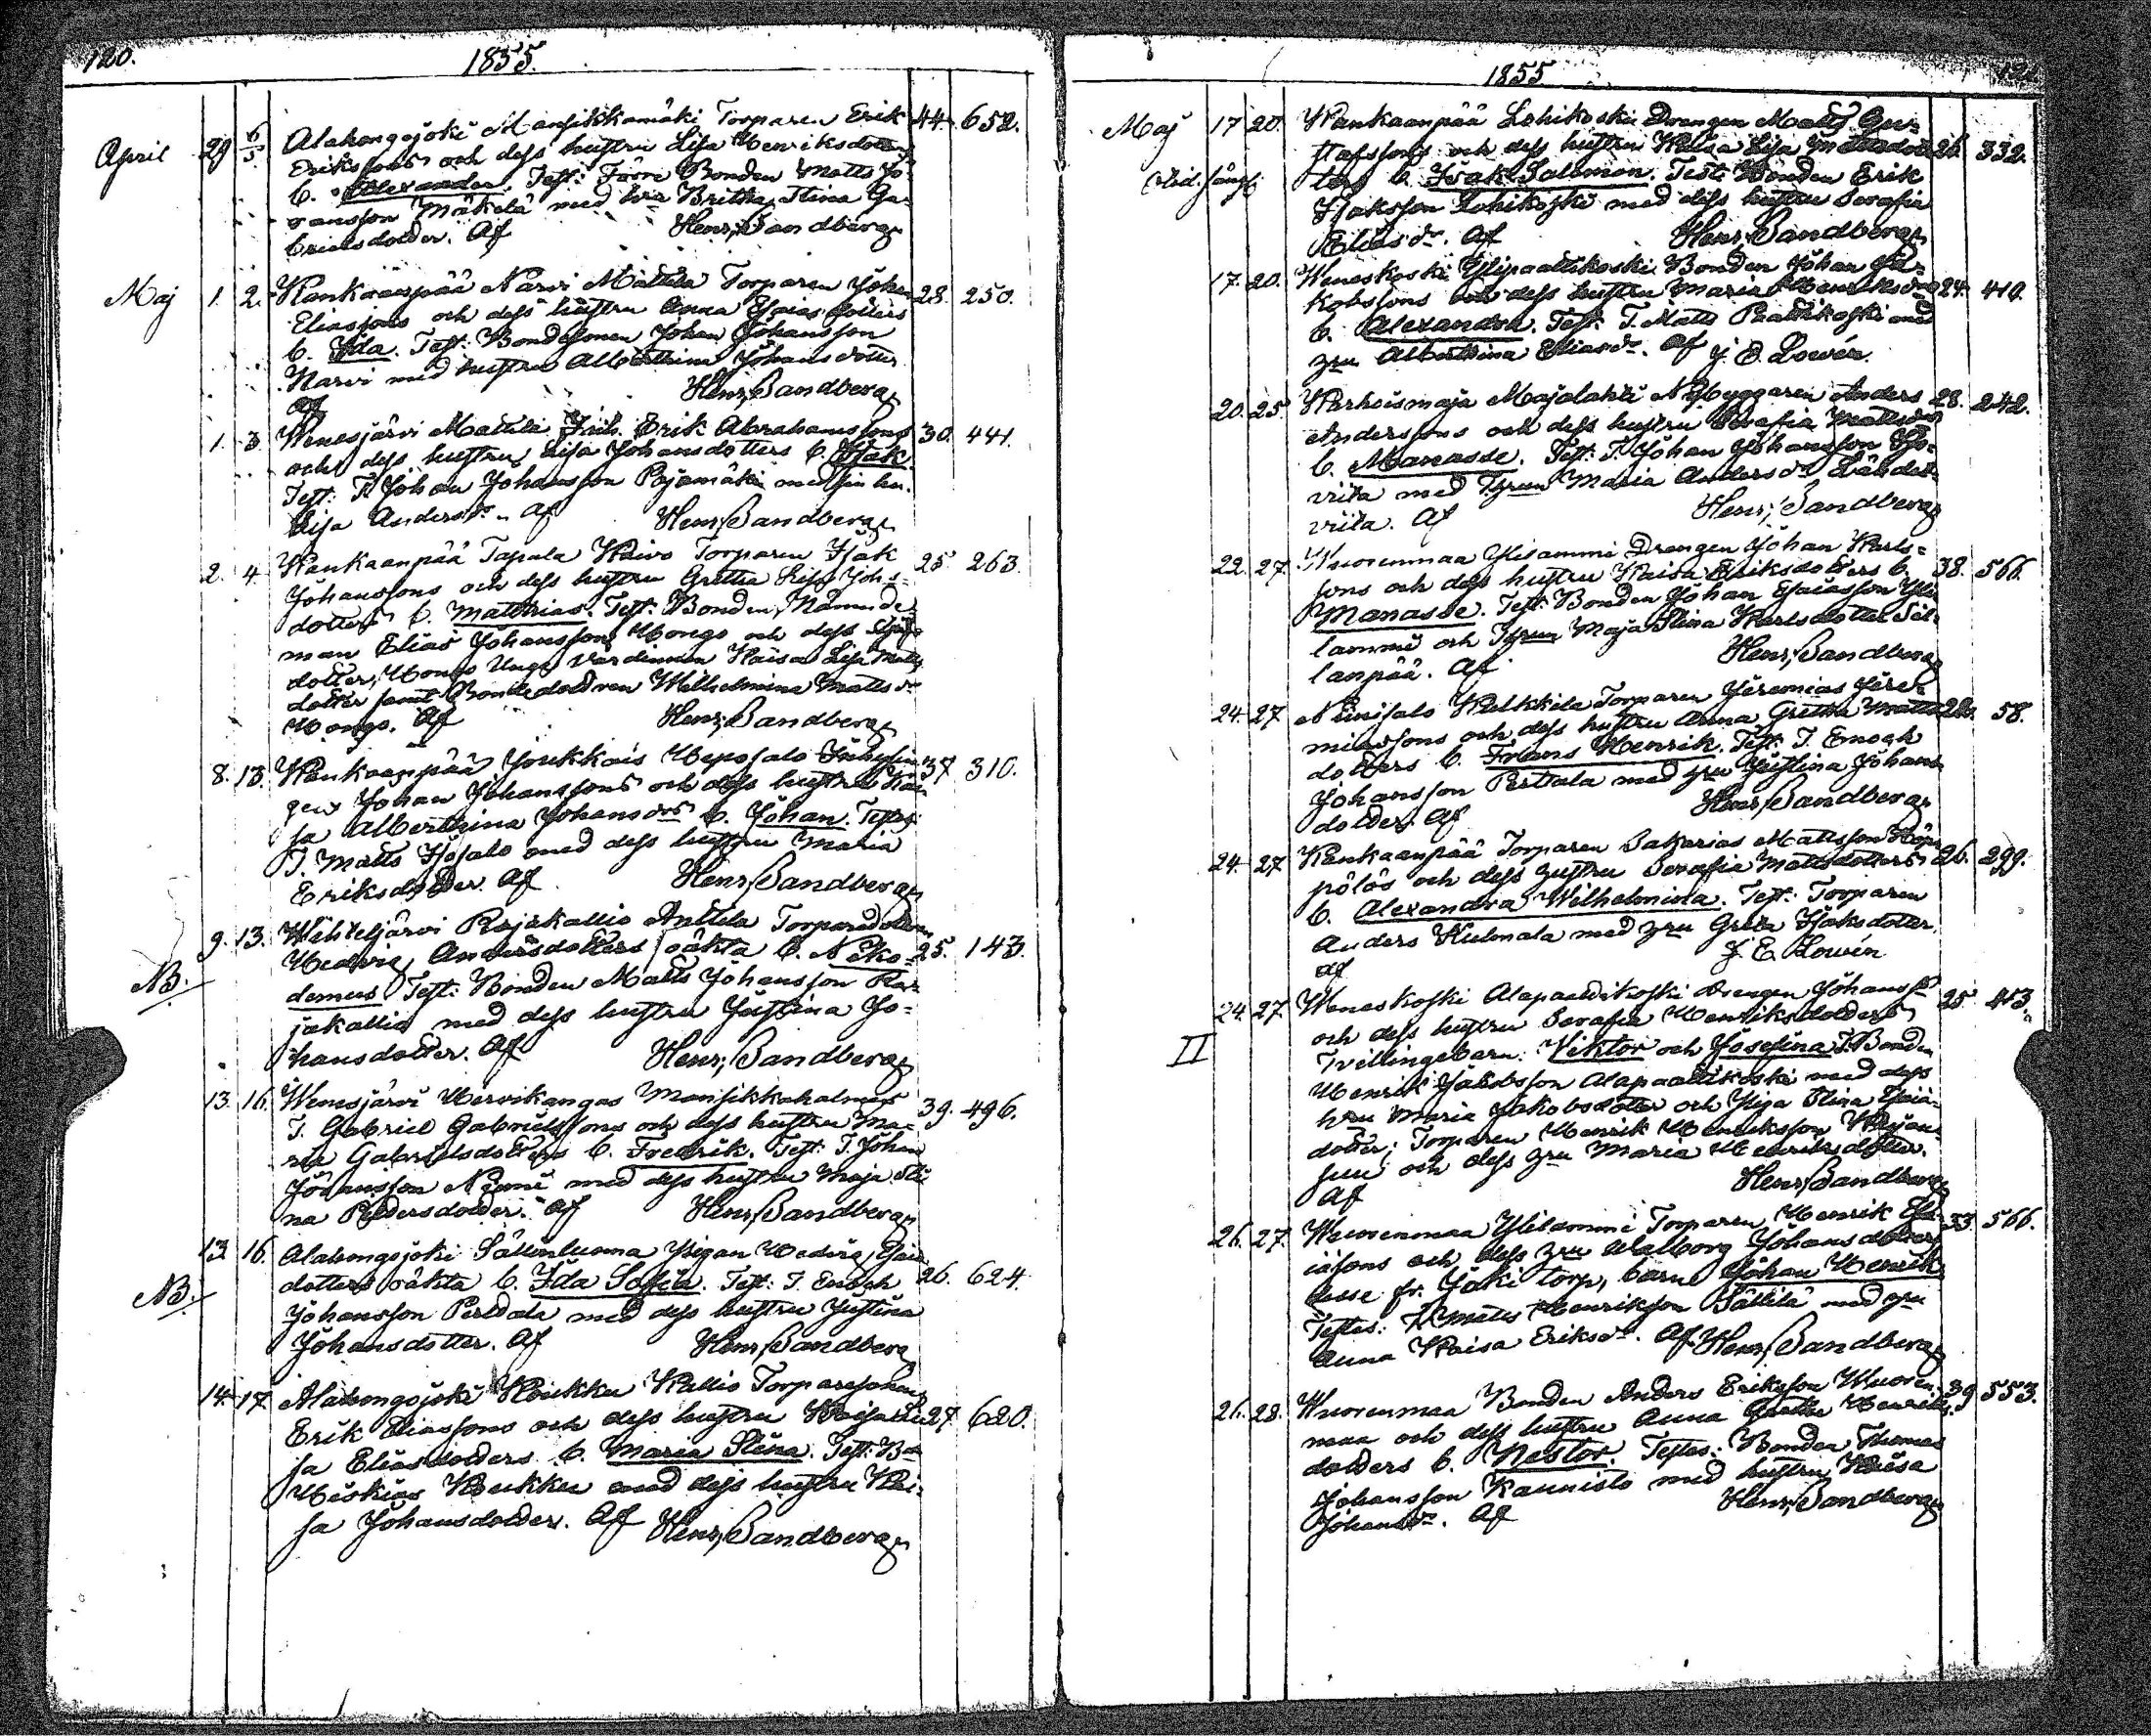 120.
1855.
April 29 6/5 Alahongojoki Mansikkamäki Torparen Erik 44. 652.
Erikssons och dess hustru Lisa Henriksdotters
b. Alexander. Test: Förre Bonden Matts Jo-
hansson Mäkelä med hu Britha Stina Ga-
brielsdotter. Af Henr; Sandberg
Maj 1. 2. Kankaanpää Narvi Mattila Torparen Johan 28. 250.
Eliassons och dess hustru Anna Esaias dotters
b. Ida. Test: Bondesonen Johan Johansson
Narvi med hustru Albertina Johansdotter
Af Henr; Sandberg
1. 3. Wenesjärvi Mattila Inh. Erik Abrahamssons 30. 441.
och dess hustru Lisa Johansdotters b. Isak
Test: T. Johan Johansson Pajamäki med sin hu.
Lisa Andersdr. Af Henr; Sandberg
2. 4. Kankaanpää Tapala Kaivo Torparen Isak 25. 263.
Johanssons och dess hustru Gretha Lisa Johs-
dotters b. Matthias. Test: Bonden, Nämnde-
man Elias Johansson Hongo och dess
dotter, Hongo Unga Värdinnan Kaisa Lisa Matts
dotter samt Bondedottren Wilhelmina Mattsdr
Hongo. Af Henr; Sandberg
8. 13. Kankaanpää Joukkais Heposalo Inhysin- 37 310.
gen Johan Johanssons och dess hustru Kai-
sa Alberthina Johansdrs b. Johan. Testes:
T. Matts Isosalo med dess hustru Maria
Eriksdotter. Af Henr; Sandberg
9. 13. Wihteljärvi Rajakallio Anttila Torparedottren
Hedvig Andersdotters oäkta b. Niko- 25. 143.
NB. demus Test: Bonden Matts Johansson Ra-
jakallio med dess hustru Justina Jo-
hansdotter. Af Henr; Sandberg
13. 16. Wenesjärvi Hervikangas Mansikkakalmes 39. 496.
T. Gabriel Gabrielssons och dess hustru Ma-
ria Gabrielsdotters b. Fredrik. Test: T. Johan
Johansson Niemi med dess hustru Maja Sti
na Pettersdotter. Af Henr; Sandberg
13 16. Alahongojoki Sällinluoma Pigan Hedvig Esaia
dotters oäkta b. Ida Sofia. Test: T. Enoch 26. 624.
NB. Johansson Perttala med dess hustru Justina
Johansdotter. Af Henr; Sandberg
14. 17. Alahongojoki Koukku Kallio Torparesonen
Erik Eliassons och dess hustru Kaisa Lii 27. 620.
sa Eliasdotters b. Maria Stina. Test: Bdn
Hiskias Koukku med dess hustru Kai-
sa Johansdotter. Af Henr; Sandberg
1855. 121.
Maj 17 20. Kankaanpää Lohikoski Drengen Matts Gu-
stafssons och dess hustru Kaisa Lisa Mattsdot 26. 332.
ters b. Isak Salomon. Test: Bonden Erik
Isaksson Lohikoski med dess hustru Serafia
Eliasdr. Af Henr; Sandberg
17. 20. Weneskoski Ylipaattikoski Bonden Johan Ja-
kobssons och dess hustru Maria Henriksdrs 24. 410.
b. Alexandra. Test: T. Matts Paattikoski med
hru Alberthina Eliasdr. Af J. E. Lowén.
20. 25 Karhoismaja Majalahti Nybyggaren Anders 28. 242.
Anderssons och dess hustru Serafia Mattsdrs
b. Manasse. Test: T. Johan Johansson Lä-
viita med hrun Maria Andersdr Lähde-
viita. Af Henr; Sandberg
22. 27. Wuorenmaa Ylisammi Drengen Johan Karls-
sons och dess hustru Kaisa Eriksdotters b. 38. 566.
Manasse. Test: Bonden Johan Esaiasson Yli
lammi och hrun Maja Stina Karlsdotter Säl-
lanpää. Af Henr; Sandberg
24. 27 Niinisalo Kalkkila Torparen Jeremias Jere-
miassons och dess hustru Anna Gretha Matts 28. 58.
dotters b. Frans Henrik. Test: T. Enoch
Johansson Perttala med hru Justina Johans-
dotter. Af Henr; Sandberg
24. 27 Kankaanpää Torparen Sakarias Mattsson Köyn
pölös och dess hustru Serafia Mattsdotters 26. 299.
b. Alexandra Wilhelmina. Test: Torparen
Anders Kulmala med hru Greta Isaksdotter.
Af J. E. Lowén
24. 27. Weneskoski Alapaattikoski Drengen Johanss. 25. 413.
och dess hustru Serafia Henriksdotters
II Tvillingebarn: Viktor och Josefina T. Bonden
Henrik Jakobsson Alapaattikoski med dess
hru Maria Jakobsdotter och Piga Stina Esaia
dotter; Torparen Henrik Henriksson Wäjän-
suu och dess hru Maria Henriksdotter.
Af Henr; Sandberg
26. 27. Wuorenmaa Ylilammi Torparen Henrik Esa- 33. 566.
iassons och dess hru Walborg Johansdotters
fr. Joki torp, barn Johan Henrik
Testes: T. Matts Henriksson Sältilä med hru
Anna Kaisa Eriksdr. Af Henr; Sandberg
26. 28. Wuorenmaa Bonden Anders Eriksson Wuoren- 39 553.
maa och dess hustru Anna Gretha Henriks
dotters b. Nestor. Testes: Bonden Thomas
Johansson Kaunisto med hustru Kaisa
Johansdr. Af Henr; Sandberg